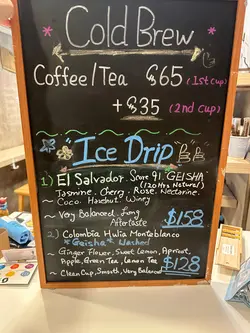 Cold Brew
Coffee/Tea $65 (1st cup)
+$35 (2nd cup)
Ice Drip
1) El Salvador Score 91. GEISHA
(120Hrs Natural)
Jasmine. Cherry. Rose. Nectarine.
~ Coco. Hazelnut. Winey
~ Very Balanced. Long
Aftertaste $158
2) Colombia Huila Monteblanco
*Geisha* Washed
~ Ginger Flower, Sweet Lemon, Apricot,
Apple, Green Tea, Lemon Tea
~ Clean Cup, Smooth, Very Balanced $128